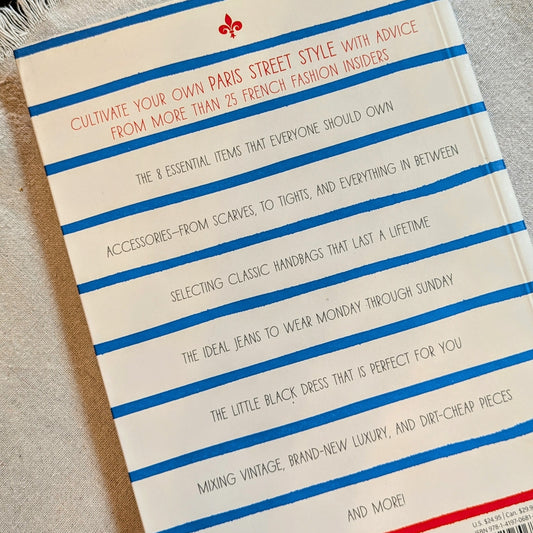 CULTIVATE YOUR OWN PARIS STREET STYLE WITH ADVICE
FROM MORE THAN 25 FRENCH FASHION INSIDERS
THE 8 ESSENTIAL ITEMS THAT EVERYONE SHOULD OWN
ACCESSORIES—FROM SCARVES, TO TIGHTS, AND EVERYTHING IN BETWEEN
SELECTING CLASSIC HANDBAGS THAT LAST A LIFETIME
THE IDEAL JEANS TO WEAR MONDAY THROUGH SUNDAY
THE LITTLE BLACK DRESS THAT IS PERFECT FOR YOU
MIXING VINTAGE, BRAND-NEW LUXURY, AND DIRT-CHEAP PIECES
AND MORE!
U.S. $24.95 | Can. $29.9
ISBN 978-1-4197-0681-